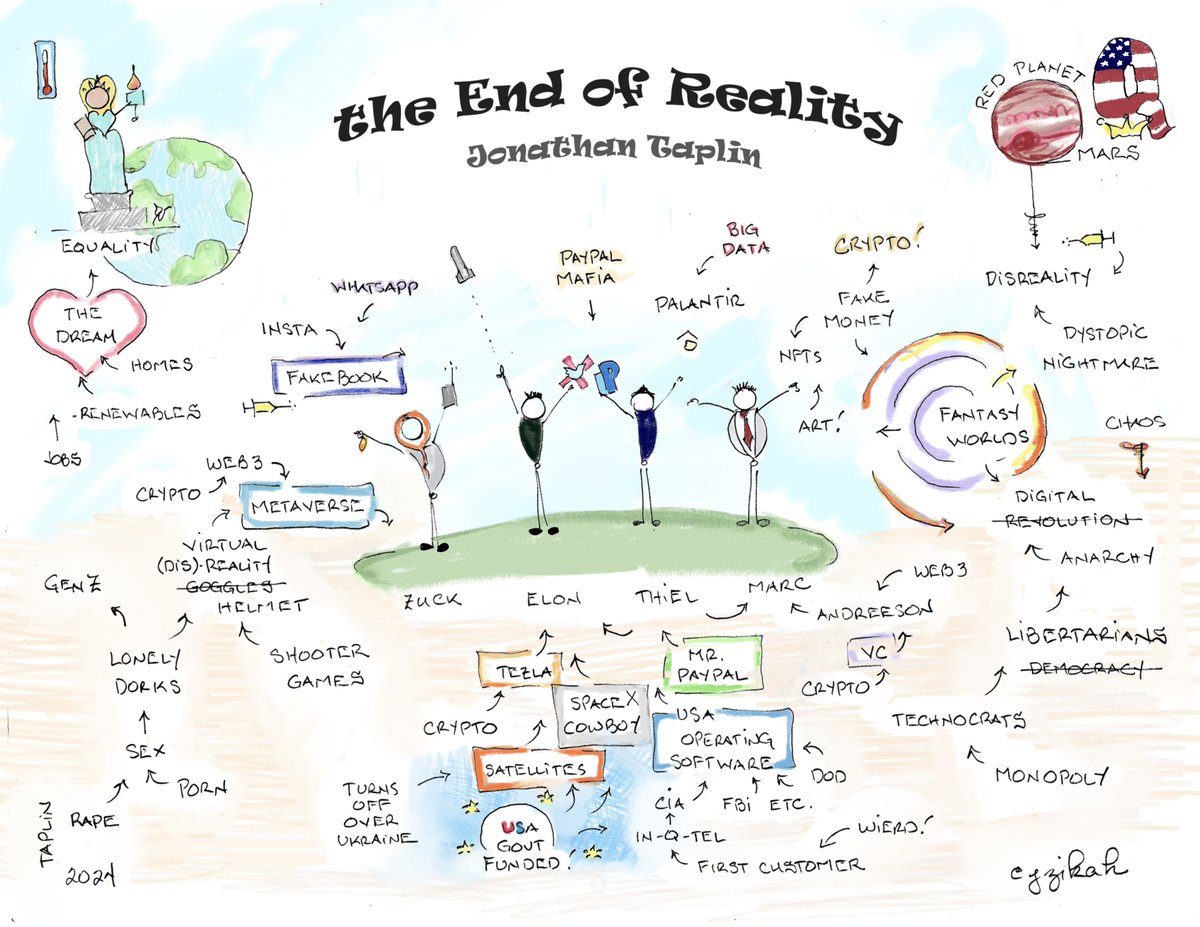 the End of Reality
Jonathan Taplin
RED PLANET
MARS
Q
EQUALITY
THE
DREAM
HOMES
RENEWABLES
JOBS
WHATSAPP
INSTA
FAKEBOOK
PAYPAL
MAFIA
BIG
DATA
PALANTIR
P
CRYPTO!
FAKE
MONEY
NFTS
ART!
DISREALITY
DYSTOPIC
NIGHTMARE
FANTASY
WORLDS
CHAOS
DIGITAL
REVOLUTION
ANARCHY
LIBERTARIANS
DEMOCRACY
TECHNOCRATS
MONOPOLY
WEB3
CRYPTO
METAVERSE
VIRTUAL
(DIS)-REALITY
GOGGLES
HELMET
GENZ
LONELY
DORKS
SHOOTER
GAMES
SEX
PORN
RAPE
ZUCK
ELON
THIEL
MARC
ANDREESON
WEB3
VC
CRYPTO
TEZLA
MR.
PAYPAL
CRYPTO
SPACEX
COWBOY
USA
OPERATING
SOFTWARE
SATELLITES
DOD
TURNS
OFF
OVER
UKRAINE
CIA
FBI ETC.
USA
GOVT
FUNDED!
IN-Q-TEL
WIERD!
FIRST CUSTOMER
TAPLIN
2024
cyzikah